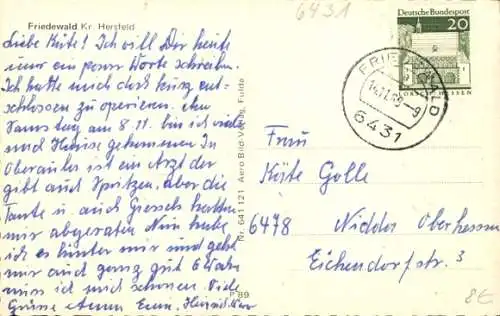 6431
Friedewald Kr. Hersfeld
Liebe Käte! Ich will Dir heute
nur ein paar Worte schreiben.
Ich hatte mich doch kurz ent-
schlossen zu operieren. Am
Samstag am 8.11. bin ich wieder
nach Hause gekommen. In
Oberaula ist ein Arzt der
gibt auch Spritzen, aber die
Tante u. auch hatten
mir abgeraten. Nun habe
ich es hinter mir und geht
mir auch ganz gut 6 Woche
muss ich mich schonen. Viele
Grüsse
Nr. 641 121 Aero Bild-Verlag, Fulda
P 89
Deutsche Bundespost
20
LORSCH HESSEN
FRIEDEWALD
6431
Frau
Käte Golle
6478 Nidda Oberhessen
Eichendorfstr. 3
8€